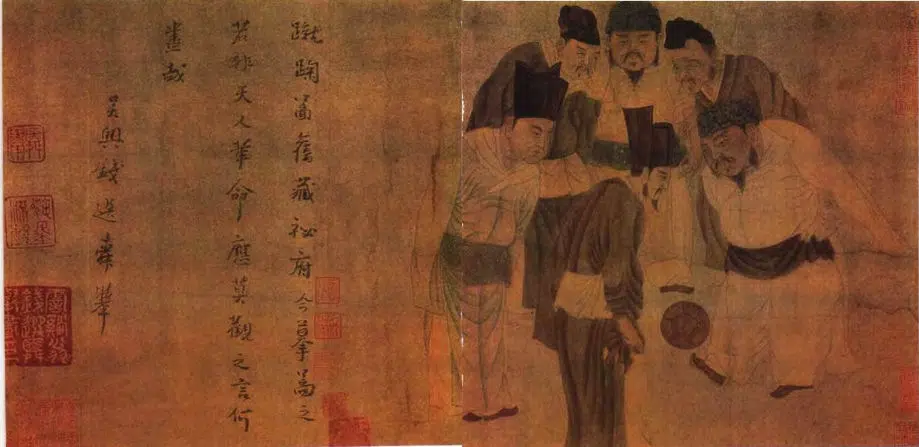 蹴踘啚舊藏祕府今摹啚之
若非天人革命應莫觀之言何
盡哉
吳興錢選舜舉